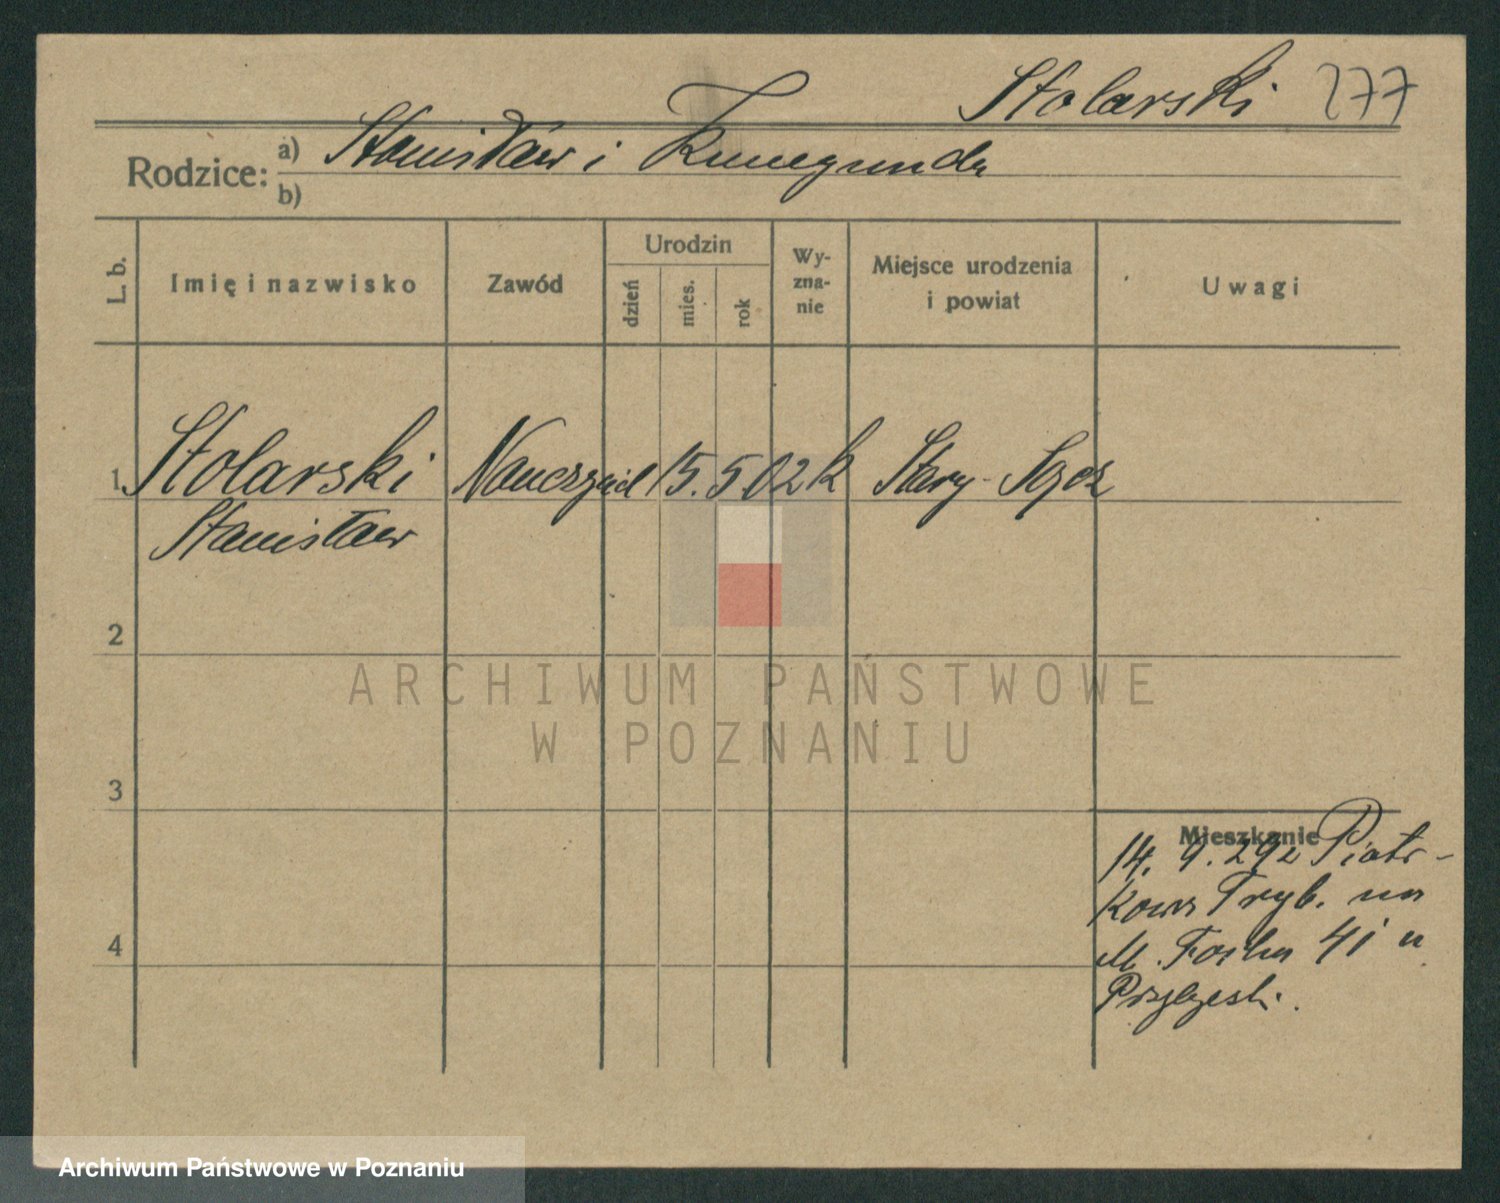 Stolarski 277
Rodzice: a) Stanisław i Kunegunda
b)
L. b. Imię i nazwisko Zawód Urodzin dzień mies. rok Wy-zna-nie Miejsce urodzenia i powiat Uwagi
1. Stolarski Nauczyciel 15. 5 02 k Stary
Stanisław
2
ARCHIWUM PAŃSTWOWE
W POZNANIU
3
Mieszkanie
14. 9. 29 z Piotr-
kowa Tryb. na
M. Focha 41 u
4
Archiwum Państwowe w Poznaniu